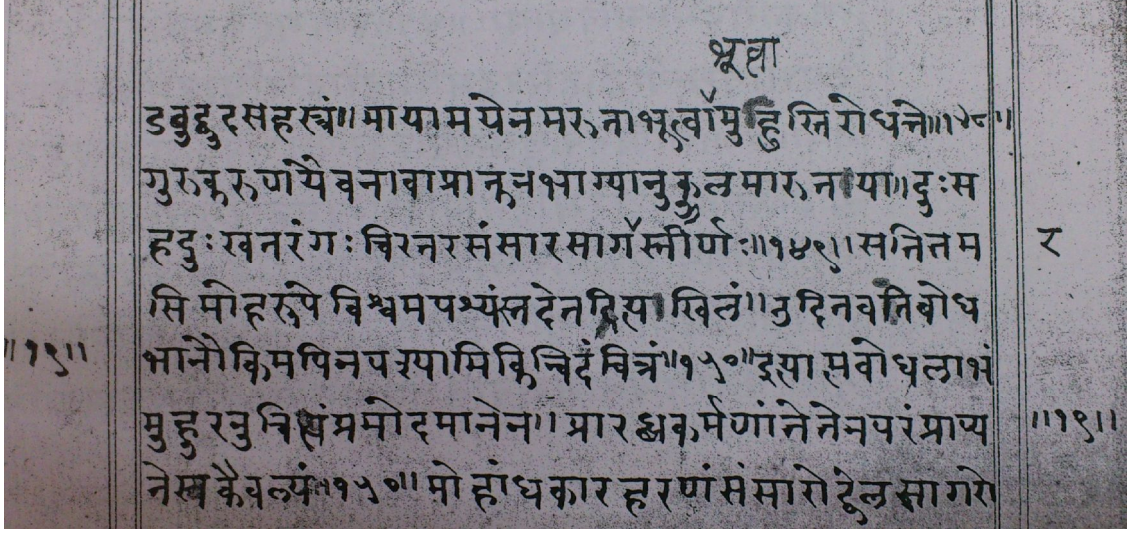 भूत्वा
डबुद्बुदसहस्त्रं॥मायामयेनमरुताभूत्वामुहुस्तिरोधत्ते॥१४८॥
गुरुकरुणयैवनावाप्राक्तनभाग्यानुकुलमारुतया॥दुःस
हदुःखतरंगःचिरतरसंसारसागस्तीर्णः॥१४९॥सतितम
र
सिमोहरूपेविश्वमपश्यंस्तदेतदित्यखिलं॥उदितवतिबोध
॥१९॥
भानौकिमपिनपश्यामिकिन्विदंचित्रं॥१५०॥इत्यात्मबोधलाभं
मुहुरनुचिंत्यंप्रमोदमानेन॥प्रारब्धकर्मणांतेतेनपरंप्राप्य
॥१९॥
तेस्वकैवल्यं॥१५०॥मोहांधकारहरणंसंसारोद्वेलसागरो